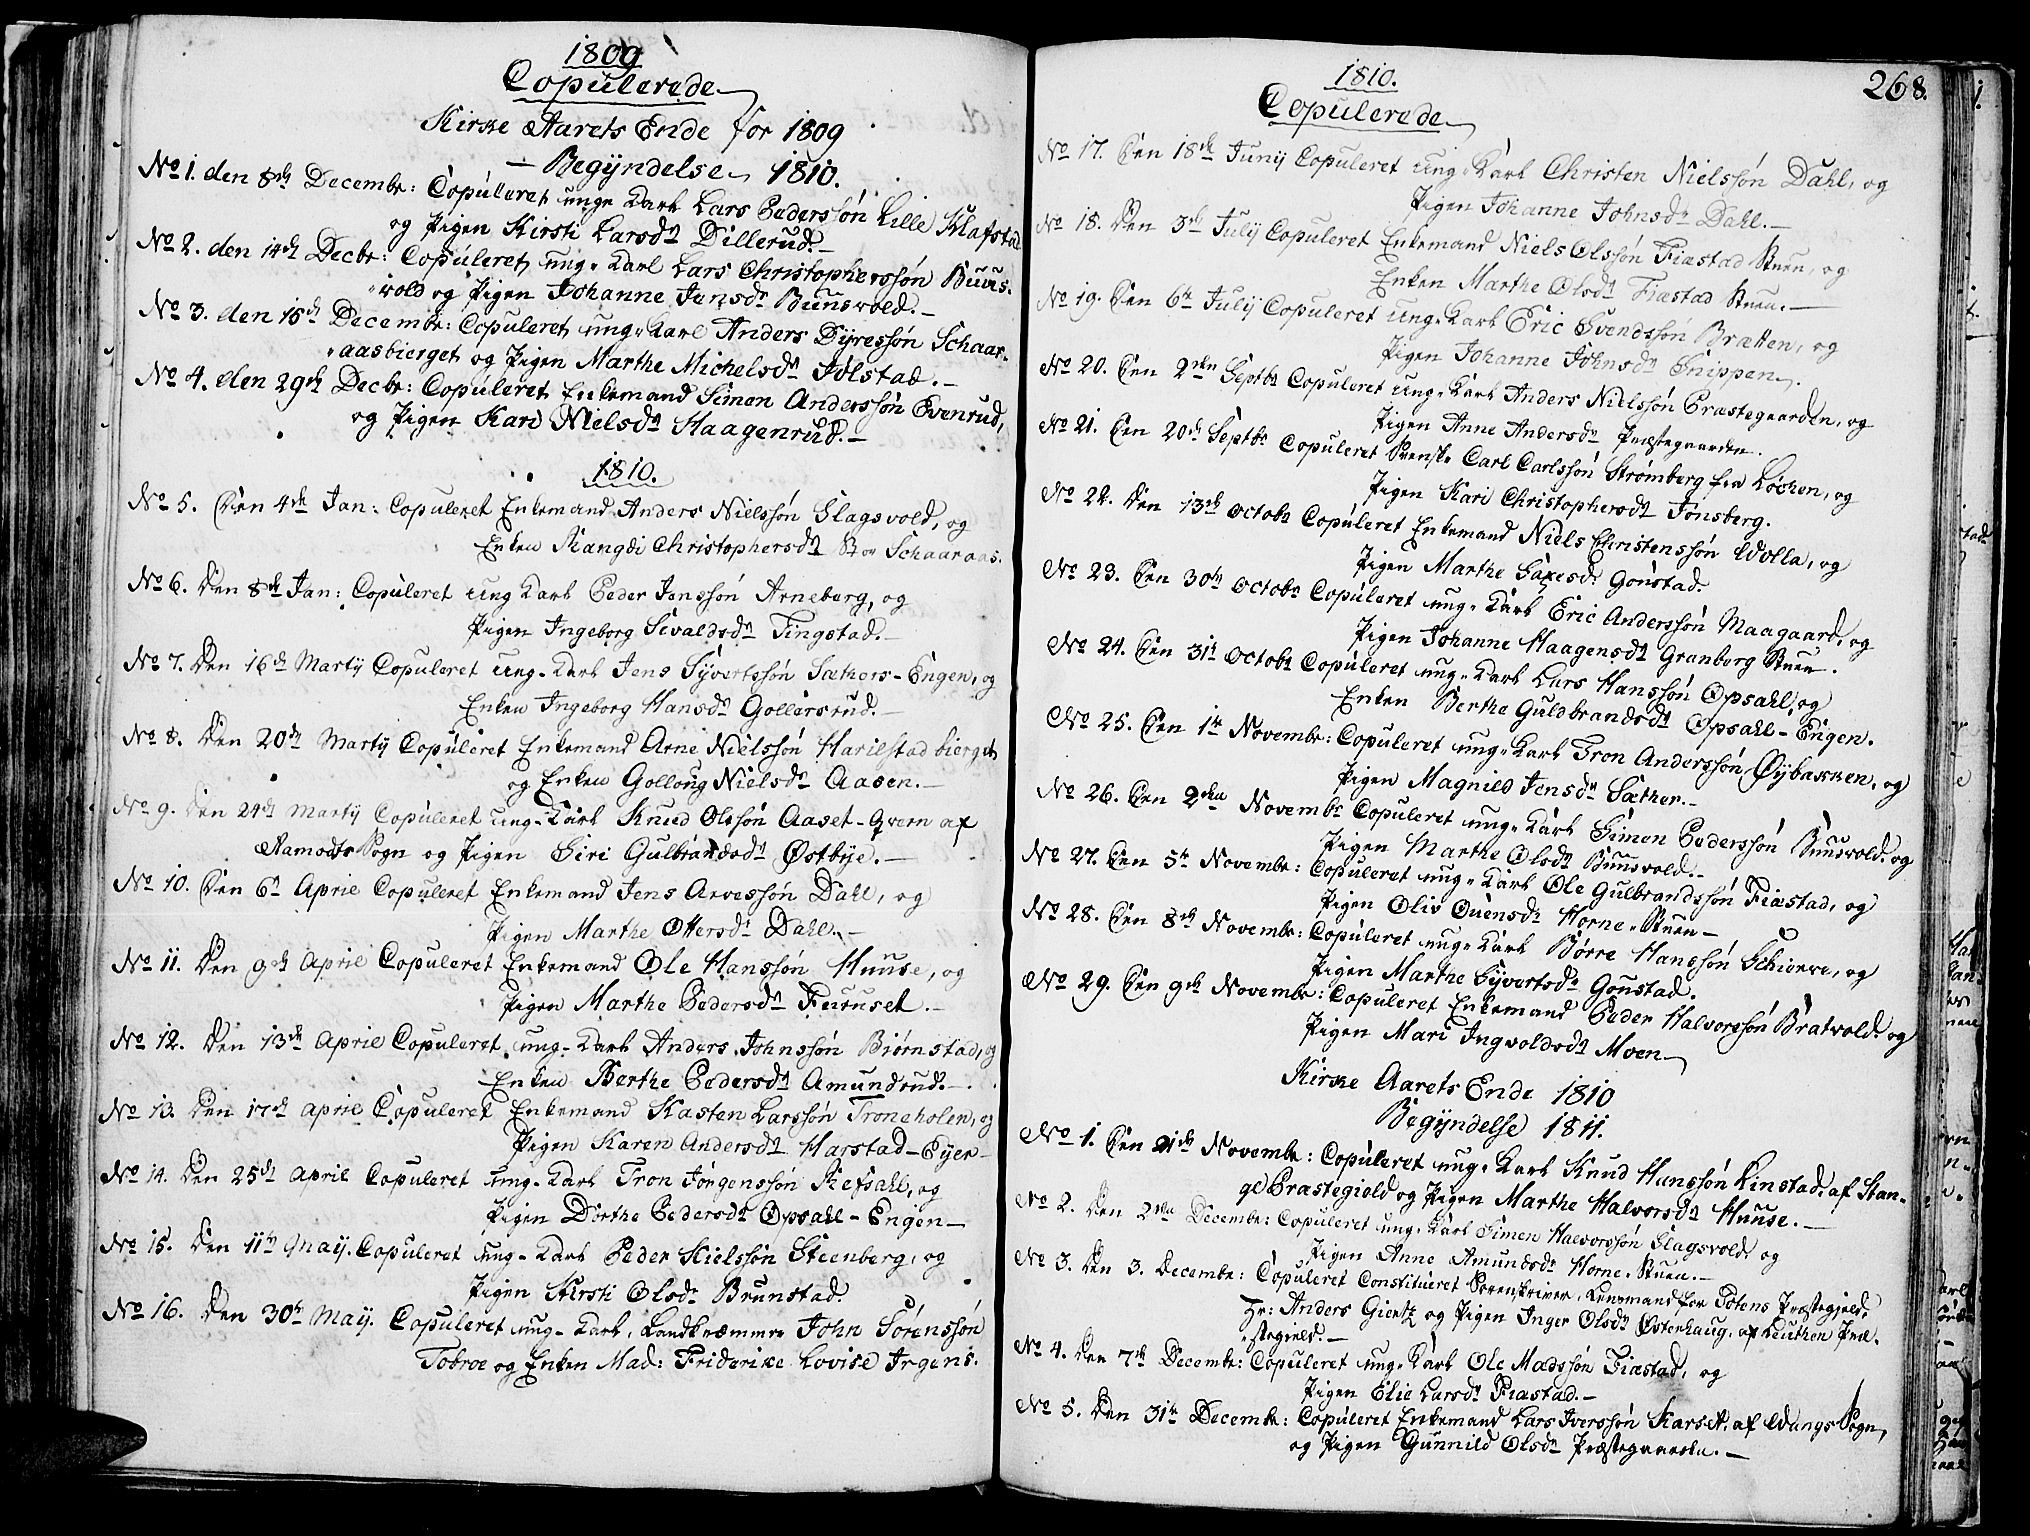 1809
Copulerede
Kirke Aarets Ende for 1809
— Begÿndelse 1810.
No 1. den 8de Decembr: Copuleret unge Karl Lars Pederssøn Lille Klafstad
og Pigen Kirsti Larsdr Dillerud.—
No 2. den 14de Decbr: Copuleret ung Karl Lars Christopherssøn Buuns-
vold og Pigen Johanne Jensdr Buunsvold.—
No 3. den 15de Decembr: Copuleret ung Karl Anders Dÿressøn Schaar-
aasbierget og Pigen Marthe Michelsdr Jølstad.—
No 4. den 29de Decbr: Copuleret Enkemand Simen Anderssøn Evenrud,
og Pigen Kari Nielsdr Haagenrud.—
1810.
No 5. Den 4de Jan: Copuleret Enkemand Anders Nielssøn Slagsvold, og
Enken Rangdi Christophersdr Stor Schaaraas.
No 6. Den 8de Jan: Copuleret ung Karl Peder Janssøn Arneberg, og
Pigen Ingeborg Sivaldsdr Tingstad.—
No 7. Den 16de Martÿ Copuleret ung Karl Jens Sÿvertssøn Sæthers-Engen, og
Enken Ingeborg Hansdr Gollersrud.—
No 8. Den 20de Martÿ Copuleret Enkemand Arne Nielssøn Harilstad bierget
og Enken Golloug Nielsdr Aasen.—
No 9. Den 24de Martÿ Copuleret ung Karl Knud Olssøn Aaset-Qvern af
Aamodts Sogn og Pigen Siri Gulbrandsdr Østbÿe.—
No 10. Den 6te April Copuleret Enkemand Jens Arvessøn Dahl, og
Pigen Marthe Ottersdr Dahl.—
No 11. Den 9de April Copuleret Enkemand Ole Hanssøn Huuse, og
Pigen Marthe Pedersdr Furuset.—
No 12. Den 13de April Copuleret ung Karl Anders Johnssøn Biørnstad, og
Enken Berthe Pedersdr Amundrud.—
No 13. Den 17de April Copuleret Enkemand Kasten Larssøn Troneholen, og
Pigen Karen Andersdr Harstad-Eÿer—
No 14. Den 25de April Copuleret ung Karl Tron Jörgenssøn Refsahl, og
Pigen Dorthe Pedersdr Opsahl-Engen—
No 15. Den 11te Maÿ. Copuleret ung Karl Peder Kielssøn Steenberg, og
Pigen Kirsti Olsdr Brunstad.
No 16. Den 30te Maÿ. Copuleret ung Karl, Landkræmmer John Sørenssøn
Tobroe og Enken Mad: Friderike Lovise Irgens.
1810.
268.
Copulerede
No 17. Den 18de Junÿ Copuleret ung Karl Christen Nielssøn Dahl, og
Pigen Johanne Johnsdr Dahl.—
No 18. Den 3de Julÿ Copuleret Enkemand Niels Olssøn Fiæstad Stuen, og
Enken Marthe Olsdr Fiæstad Stuen.—
No 19. Den 6te Julÿ Copuleret ung Karl Eric Svendssøn Bratten, og
Pigen Johanne Johnsdr Snippen.
No 20. Den 2den Septbr Copuleret ung Karl Anders Nielssøn Præstegaarden, og
Pigen Anne Andersdr Præstegaarden.
No 21. Den 20de Septbr Copuleret Svensk Carl Carlssøn Strømberg fra Løchen, og
Pigen Kari Christophersdr Tonsberg.
No 22. Den 13de Octobr Copuleret Enkemand Niels Christenssøn Wolla, og
Pigen Marthe Saxesdr Gonstad.
No 23. Den 30te Octobr Copuleret ung Karl Eric Anderssøn Maagaard, og
Pigen Johanne Haagensdr Granberg Stuen.
No 24. Den 31te Octobr Copuleret ung Karl Lars Hanssøn Opsahl, og
Enken Berthe Guldbrandsdr Opsahl-Engen.
No 25. Den 1te Novembr: Copuleret ung Karl Tron Anderssøn Øÿbakken, og
Pigen Magnild Jensdr Sæther.—
No 26. Den 2den Novembr Copuleret ung Karl Simen Pederssøn Buunsvold. og
Pigen Marthe Olsdr Buunsvold.—
No 27. Den 5te Novembr: Copuleret ung Karl Ole Gulbrandssøn Fiæstad, og
Pigen Oliv Ouensdr Horne-Stuen—
No 28. Den 8de Novembr: Copuleret ung Karl Børre Hanssøn Schierre, og
Pigen Marthe Sÿvertsdr Gonstad.
No 29. Den 9de Novembr: Copuleret Enkemand Peder Halvorssøn Bratvold. og
Pigen Mari Ingvoldsdr Moen—
Kirke Aarets Ende 1810
Begÿndelse 1811.
No 1. Den 21de Novembr: Copuleret ung Karl Knud Hanssøn Kinstad, af Stan-
ge Præstegield og Pigen Marthe Halvorsdr Huuse.—
No 2. Den 2den Decembr: Copuleret ung Karl Simen Halvorssøn Slagsvold. og
Pigen Anne Amundsdr Horne-Stuen.—
No 3. Den 3. Decembr: Copuleret Constitueret Sorenskriver, Lensmand for Totens Præstegjeld,
Hr: Anders Giertz og Pigen Inger Olsdr Østenhaug, af Leuthen Præ-
stegield.—
No 4. Den 7de Decembr: Copuleret ung Karl Ole Madssøn Fiæstad, og
Pigen Elie Larsdr Fiæstad.—
No 5. Den 31te Decembr: Copuleret Enkemand Lars Iverssøn Karset, af Wangs Sogn,
og Pigen Gunnild Olsdr Præstegaarden.—